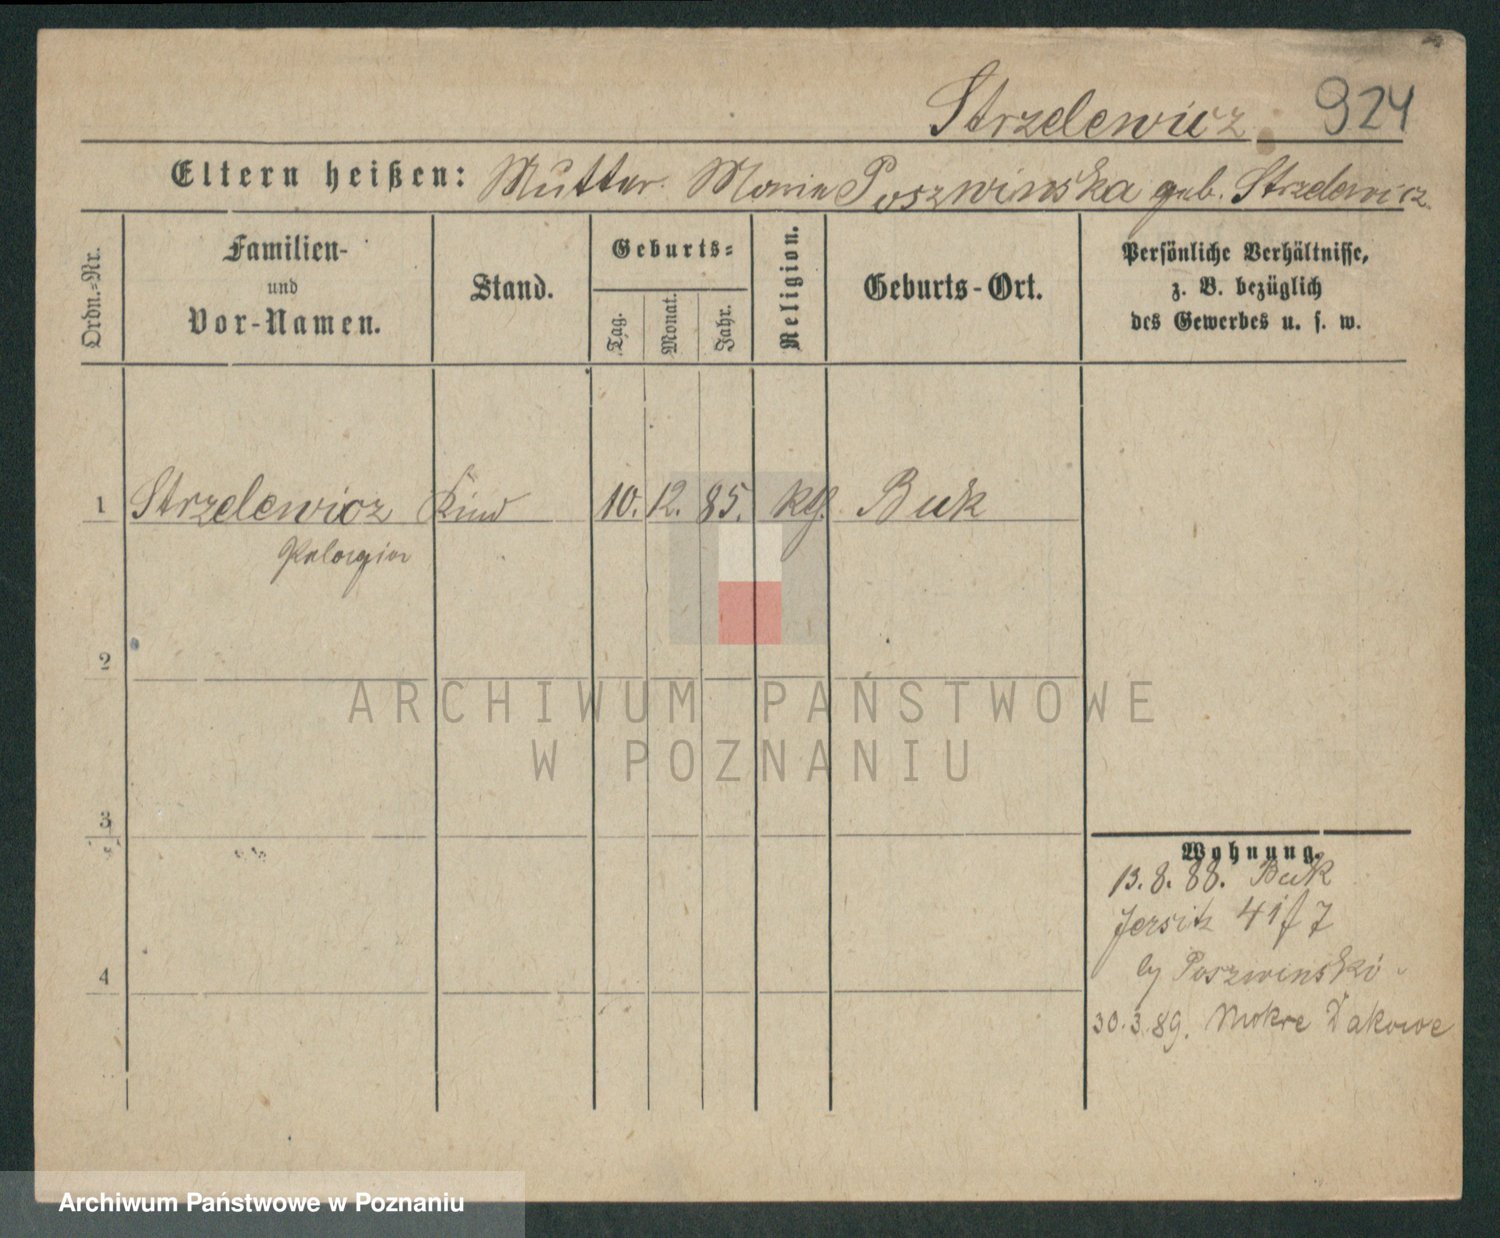 Strzelewicz 924
Eltern heißen: Mutter. Marie Poszwinska geb. Strzelewicz
Ordn.-Nr.
Familien-
und
Vor-Namen.
Stand.
Geburts-
Tag.
Monat.
Jahr.
Religion.
Geburts-Ort.
Persönliche Verhältnisse,
z. B. bezüglich
des Gewerbes u. s. w.
1 Strzelewicz Kind 10. 12. 85. kg. Buk
Pelargia
2
ARCHIWUM PAŃSTWOWE
W POZNANIU
3
Wohnung.
13. 8. 88. Buk
Jersitz 41
4
by Poszwinski
30. 3. 89. Mokre
Archiwum Państwowe w Poznaniu